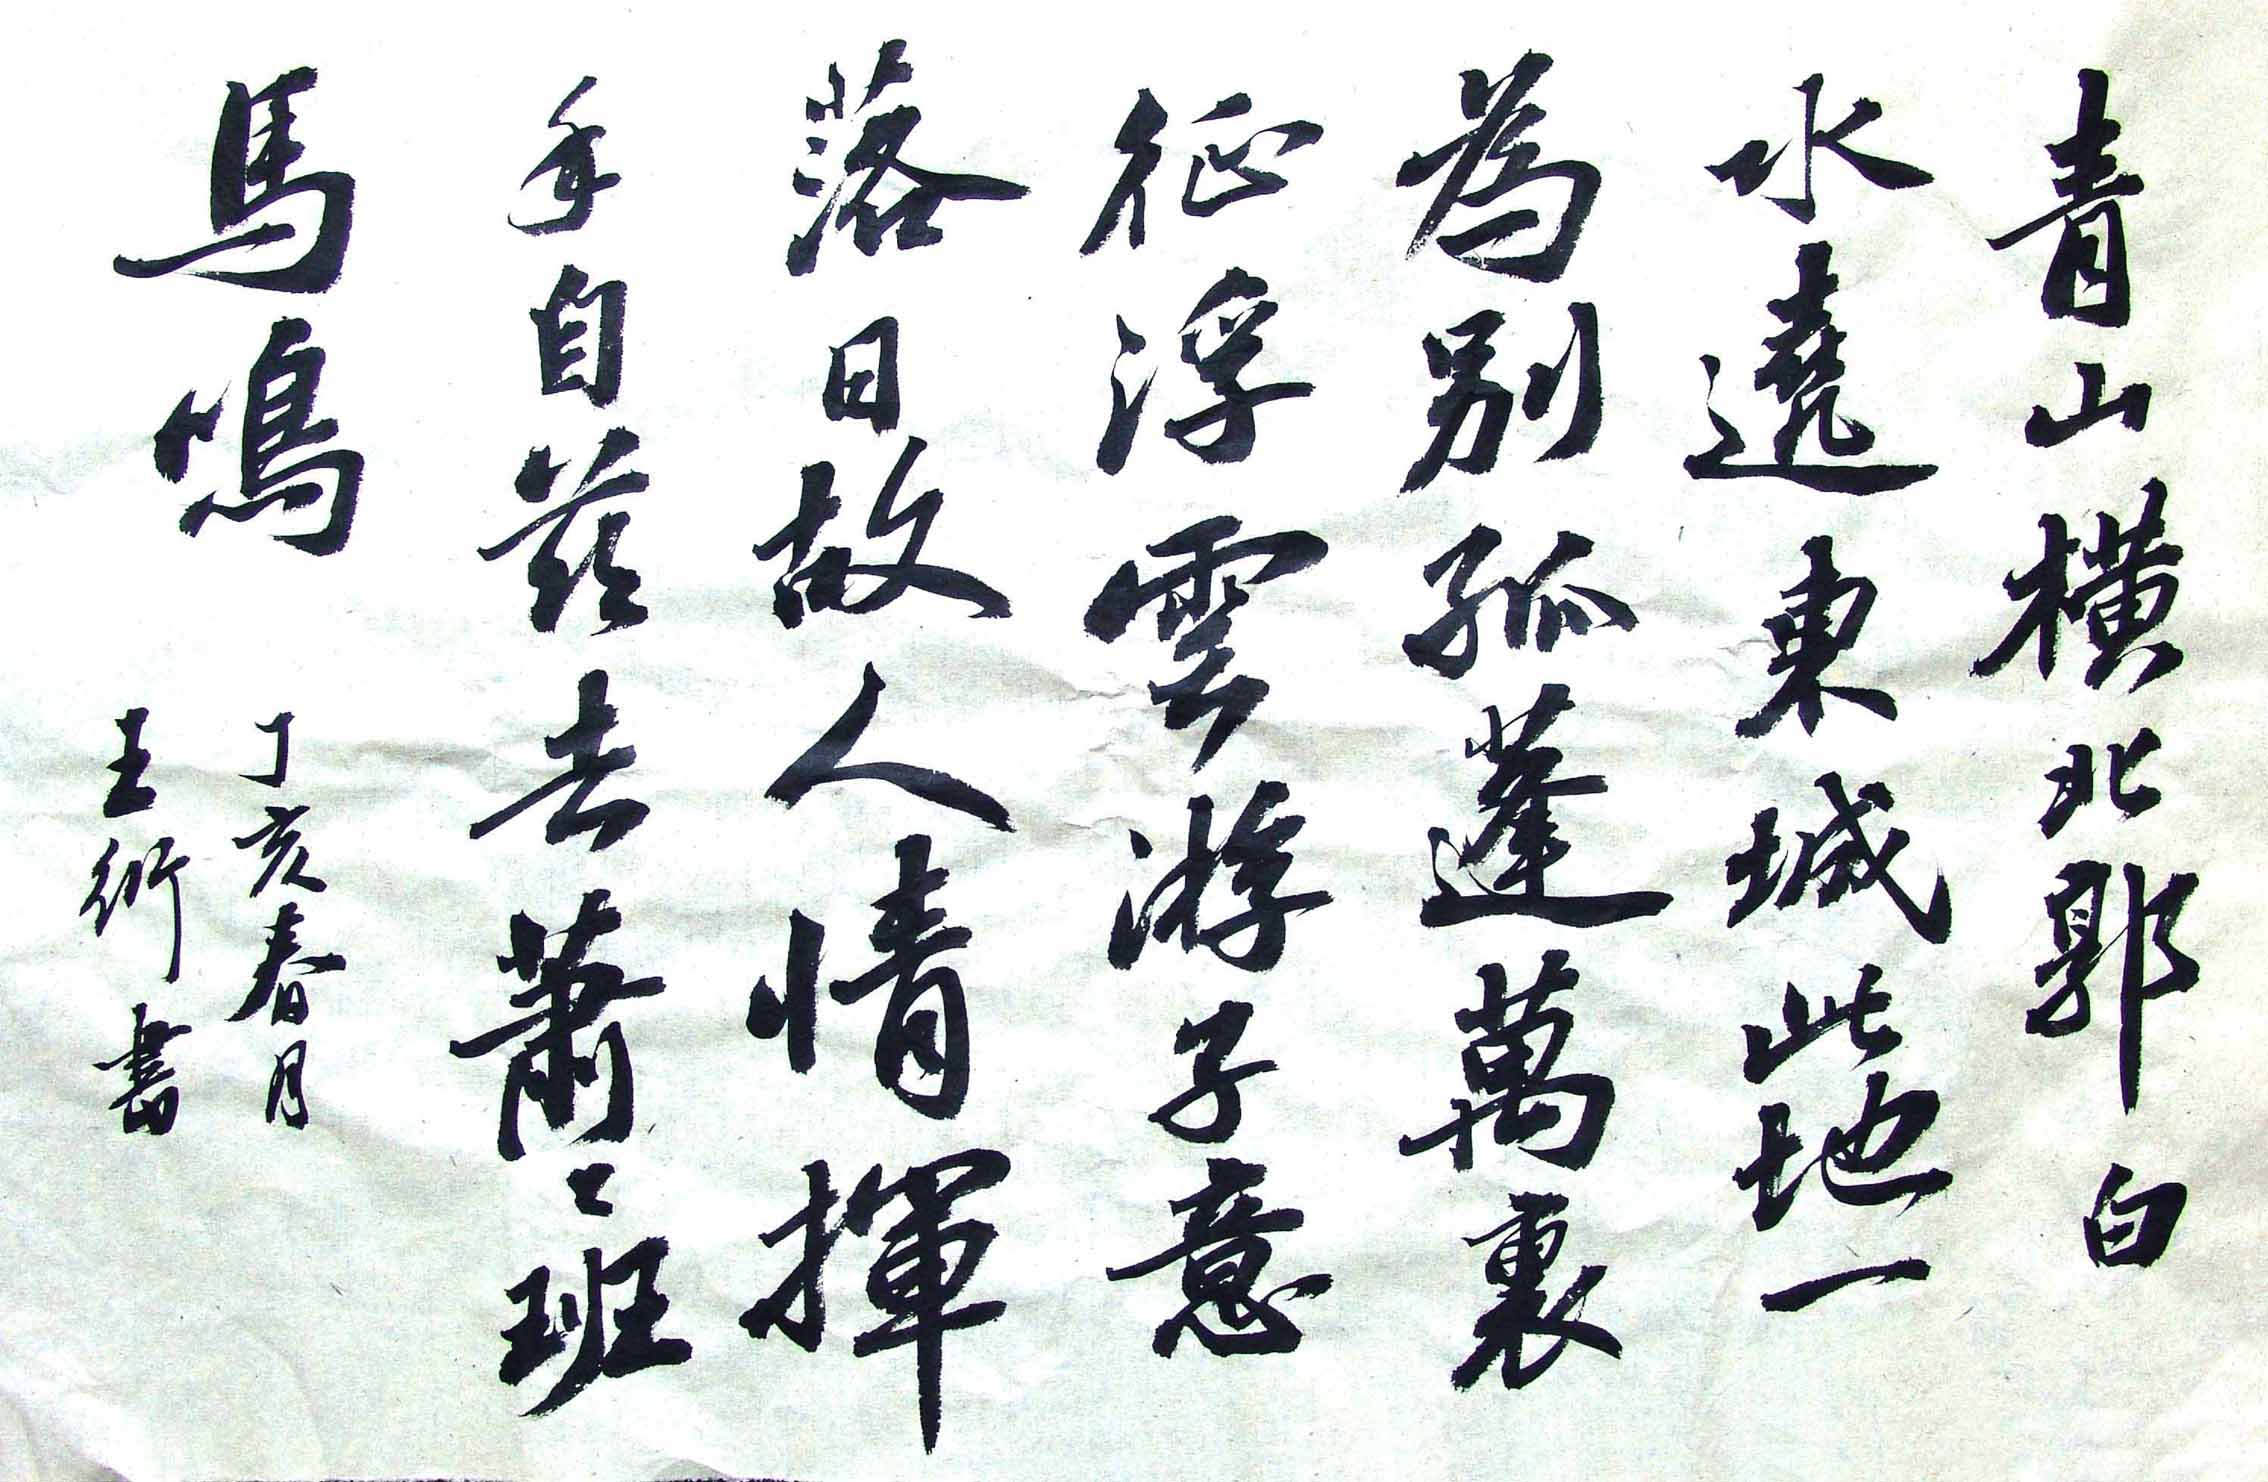 青山橫北郭白
水遶東城此地一
為別孤蓬萬裏
征浮雲游子意
落日故人情揮
手自茲去蕭〻班
馬鳴
丁亥春月
王衍書